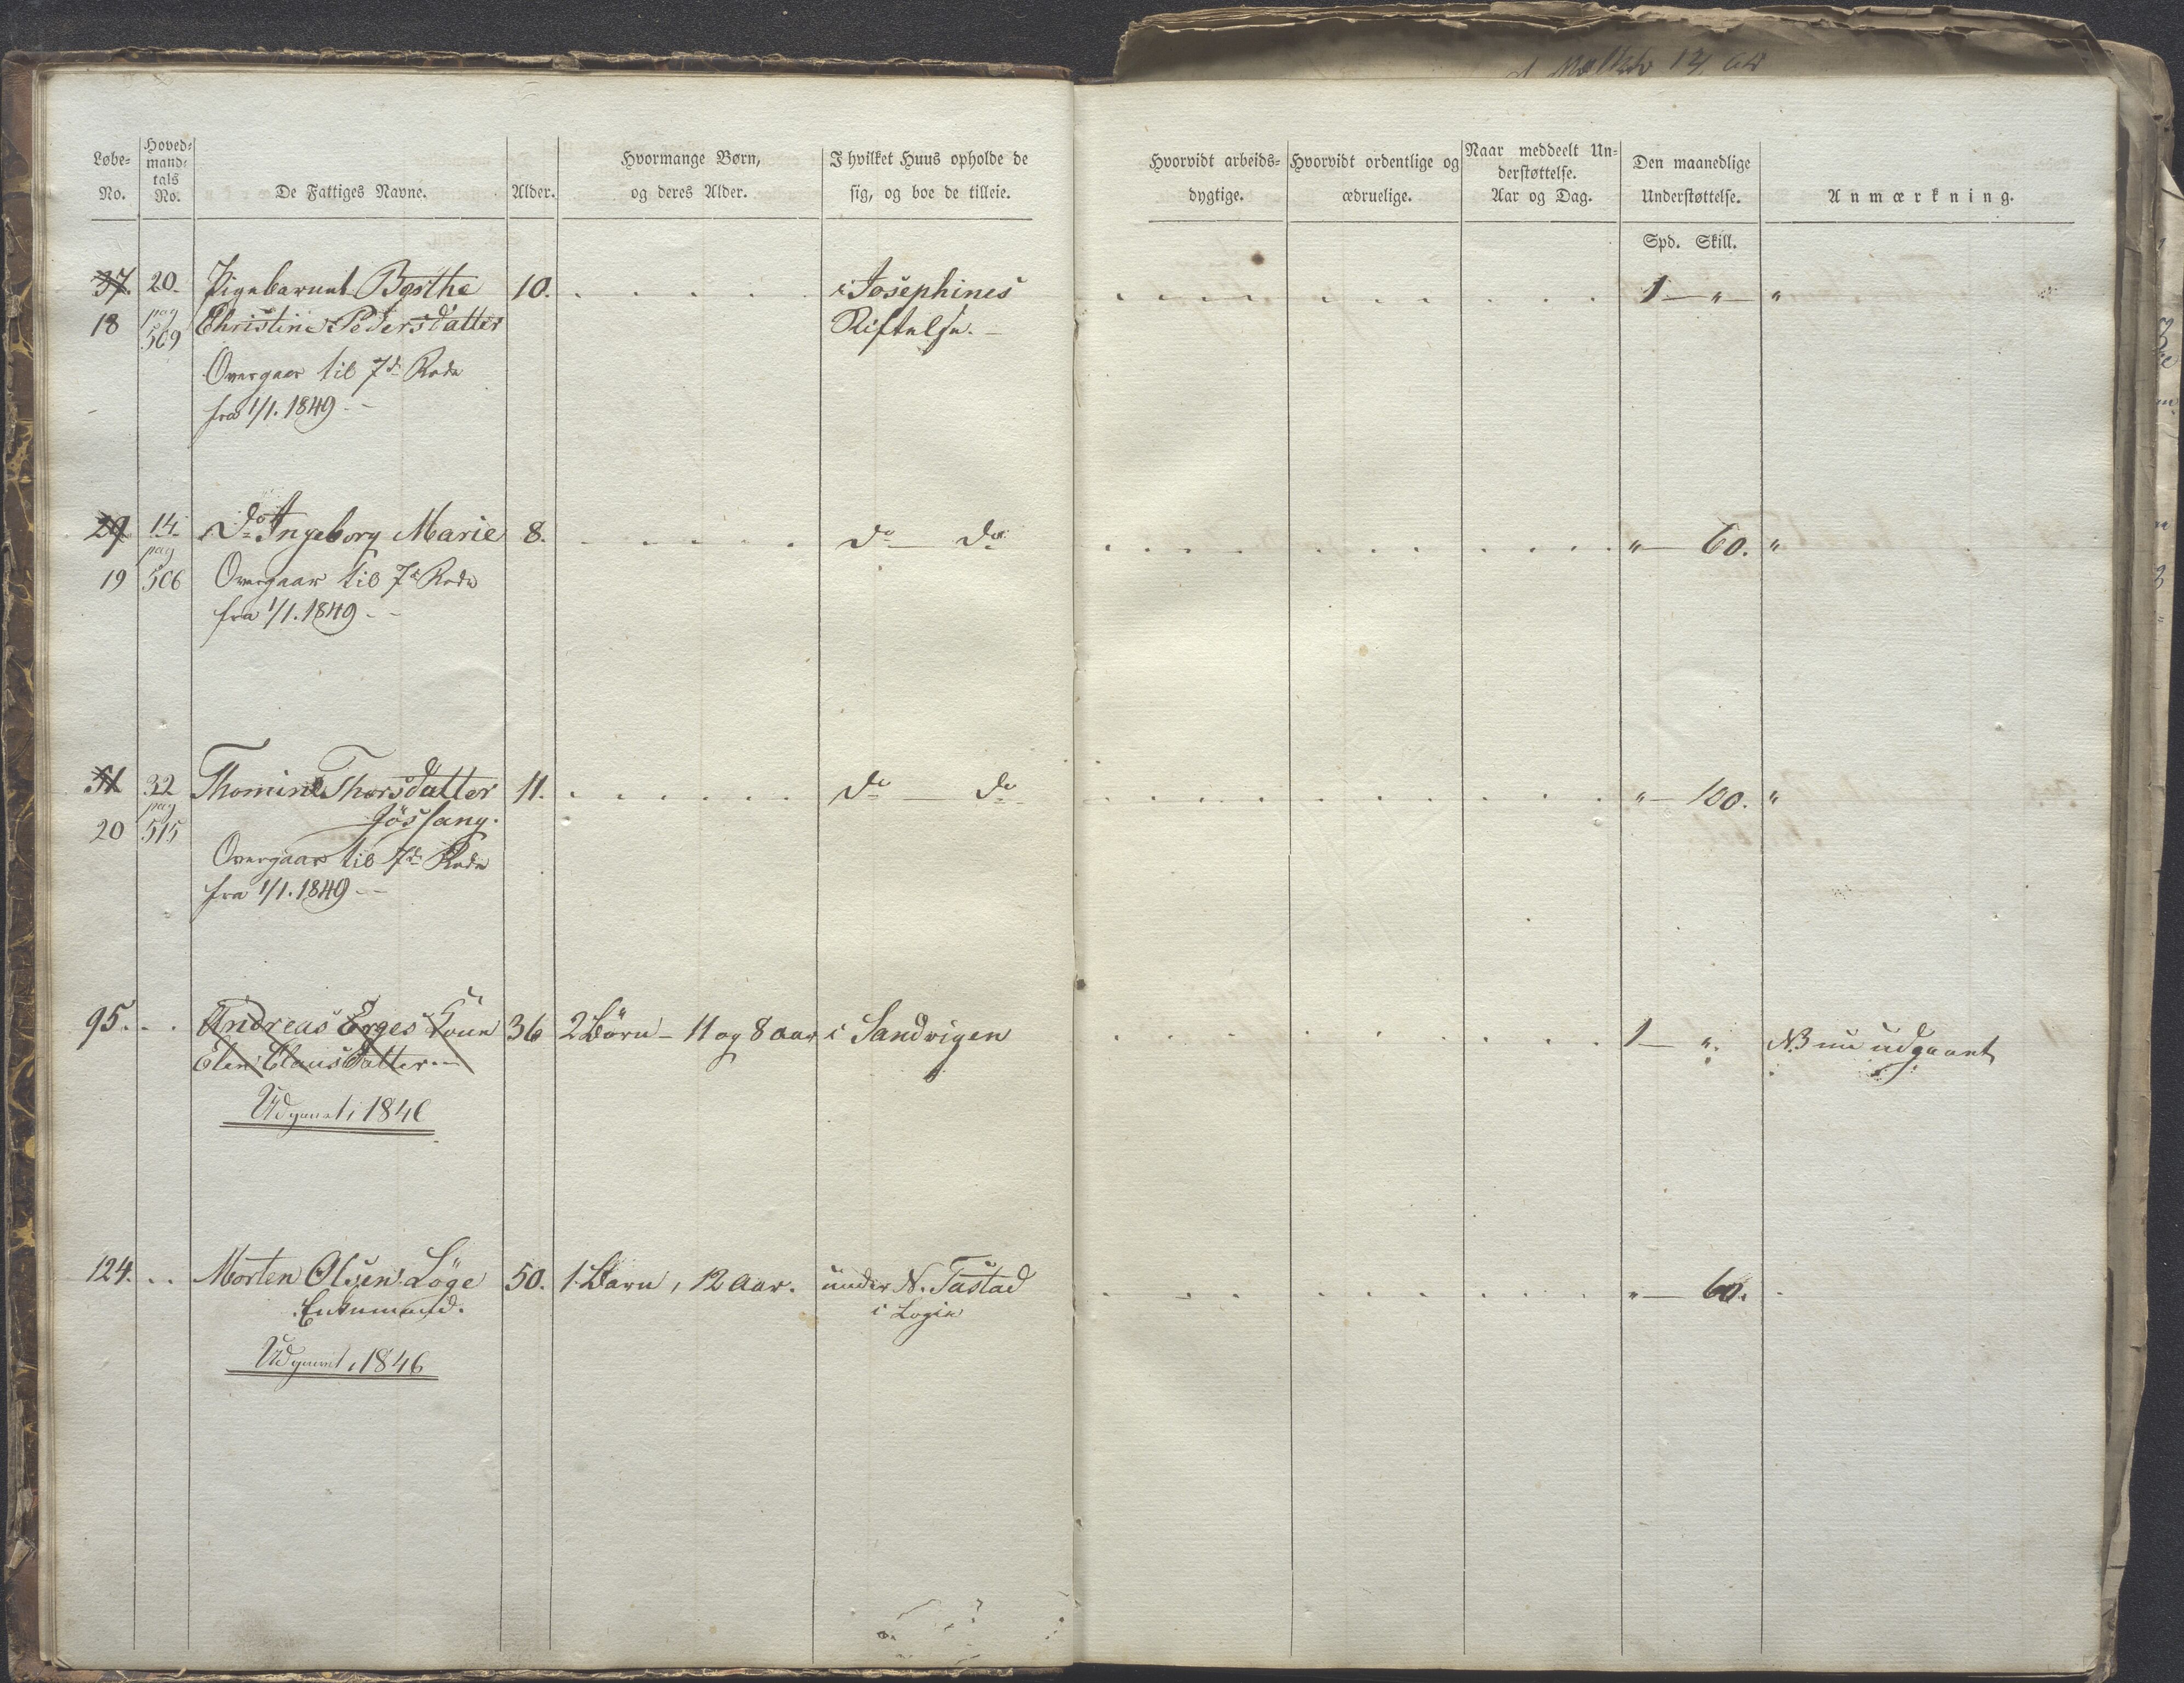 Løbe-
No.
Hoved-
mand-
tals
No.
De Fattiges Navne.
Alder.
Hvormange Børn,
og deres Alder.
I hvilket Huus opholde de
sig, og boe de tilleie.
Hvorvidt arbeids-
dygtige.
Hvorvidt ordentlige og
ædruelige.
Naar meddeelt Un-
derstøttelse.
Aar og Dag.
Den maanedlige
Understøttelse.
Anmærkning.
Spd. Skill.
37. 20. Pigebarnet Berthe 10. . . . . . i Josephines . . . . 1 — " — "
18 pag 509 Christine Pedersdatter Stiftelse. —
Overgaar til 7de Rode
fra 1/1. 1849 —
29 14. Do Ingeborg Marie 8. . . . . . do — do . . . . " — 60. "
pag
19 506 Overgaar til 7de Rode
fra 1/1. 1849 —
51 32 Thomine Thorsdatter 11. . . . . . do — do . . . . " — 100. "
pag Jössang.
20 515
Overgaar til 7de Rode
fra 1/1. 1849 —
95. . . Andreas Erges Kone 36 2 Börn — 11 og 8 aar i Sandvigen . . . . 1 — ". NB nu udgaaet
Elen Clausdatter —
Udgaaet i 1846
124. . . Morten Olsen Löge 50. 1 Barn, 12 Aar. under N. Tastad . . . . " — 60. .
Enkemand. i Logie
Udgaaet i 1846